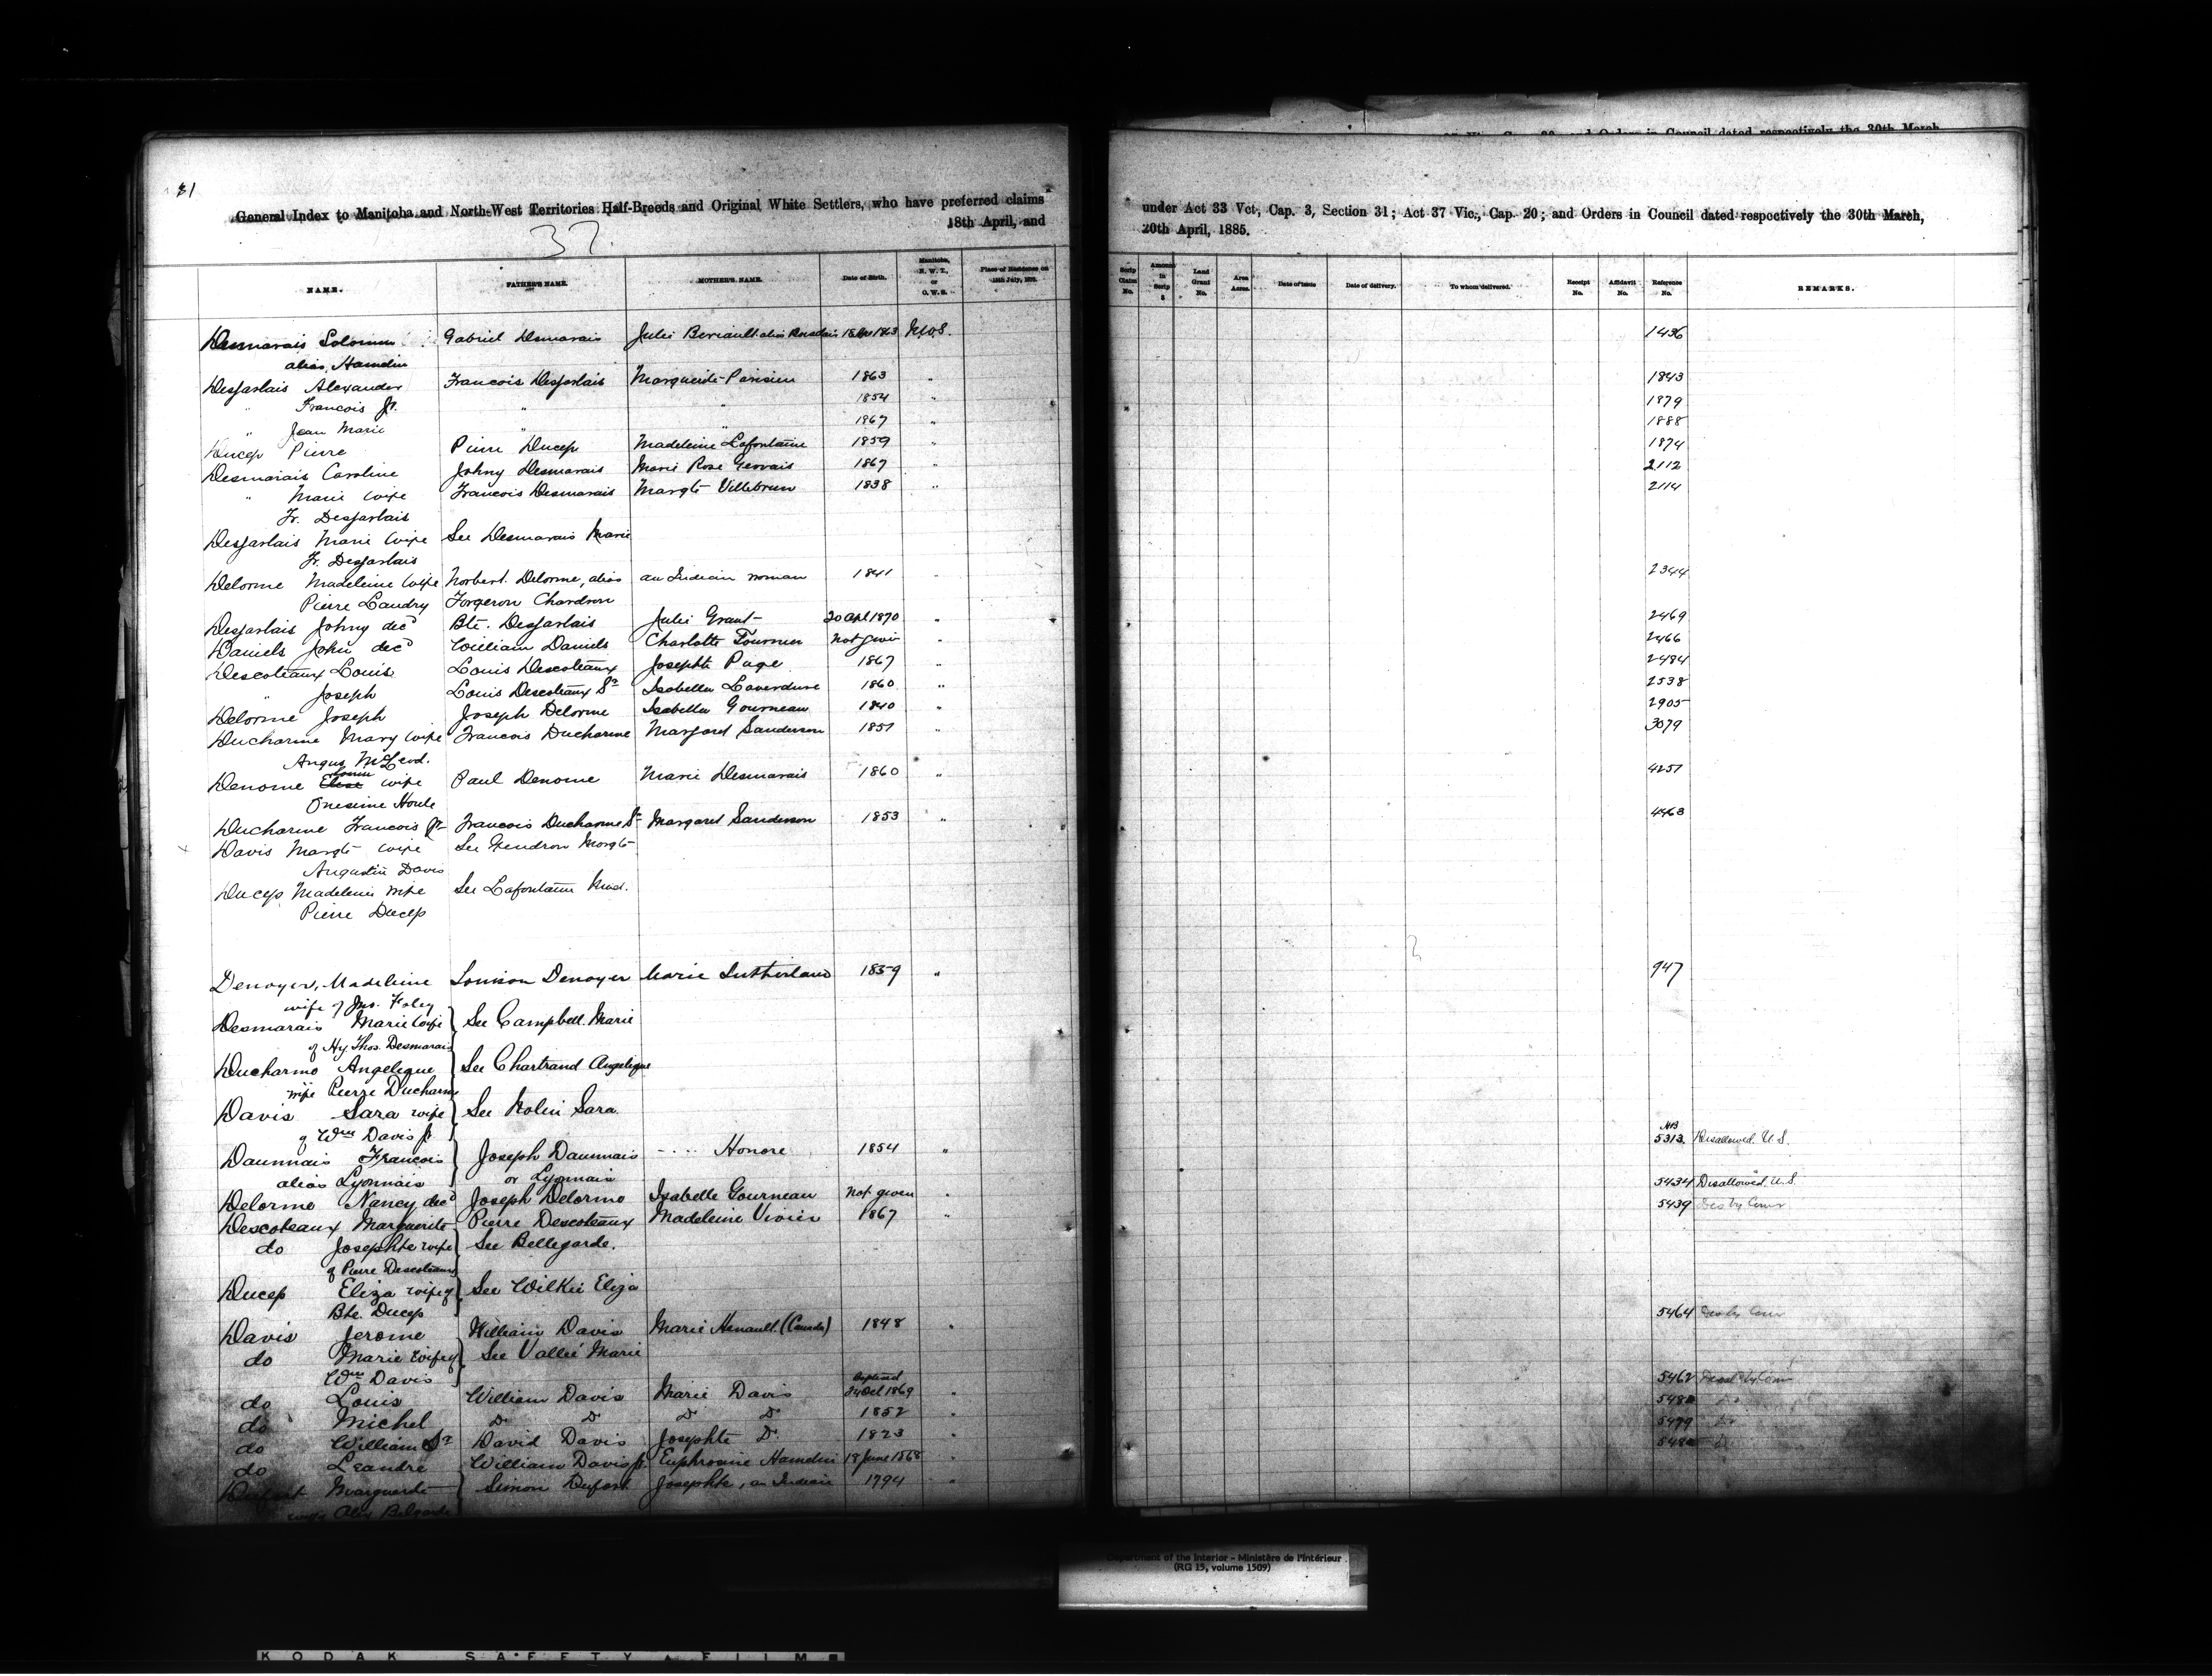 31
General Index to Manitoba and North-West Territories Half-Breeds and Original White Settlers, who have preferred claims under Act 33 Vct, Cap. 3, Section 31; Act 37 Vic., Cap. 20; and Orders in Council dated respectively the 30th March,
18th April, and 20th April, 1885.
37.
NAME. FATHER'S NAME. MOTHER'S NAME. Date of Birth. Manitoba, N. W. T., or O. W. S. Place of Residence on 15th July, 1870. Scrip Claim No. Amount in Scrip $ Land Grant No. Area Acres. Date of Issue Date of delivery. To whom delivered. Receipt No. Affidavit No. Reference No. REMARKS.
Desmarais Solomon Gabriel Desmarais Julie Beriault alias 1863 1436
alias Hamelin
Desjarlais Alexander Francois Desjarlais Marguerite Parisien 1863 " 1843
" Francois Jr. " " 1854 " 1879
" Jean Marie " " 1867 " 1888
Ducep Pierre Pierre Ducep Madeleine Lafontaine 1859 " 1874
Desmarais Caroline Johny Desmarais Marie Rose Gervais 1867 " 2112
" Marie wife Francois Desmarais Margte Villebrun 1838 " 2114
Fr. Desjarlais
Desjarlais Marie wife See Desmarais Marie
Fr. Desjarlais
Delorme Madeleine wife Norbert Delorme, alias an Indian woman 1841 " 2344
Pierre Laudry Forgeron Chardron
Desjarlais Johny decd Bte. Desjarlais Julie Grant 20 Apl 1870 " 2469
Daniels John decd William Daniels Charlotte Fournier Not given " 2466
Descoteaux Louis Louis Descoteaux Josephte Page 1867 " 2484
" Joseph Louis Descoteaux Sr Isabella Laverdure 1860 " 2538
Delorme Joseph Joseph Delorme Isabella Gourneau 1840 " 2905
Ducharme Mary wife Francois Ducharme Margaret Sanderson 1851 " 3079
Angus McLeod.
Denome wife Paul Denome Marie Desmarais 1860 " 4257
Onesime Houle
Ducharme Francois Jr Francois Ducharme Sr Margaret Sanderson 1853 " 4463
Davis Margte wife See Gendron Margte
Augustin Davis
Ducep Madeleine wife See Lafontaine Mad.
Pierre Ducep
Denoyer, Madeleine Louison Denoyer Marie Sutherland 1859 " 947
wife of Jno. Foley
Desmarais Marie wife See Campbell Marie
of Hy. Thos. Desmarais
Ducharme Angelique See Chartrand Angelique
wife Pierre Ducharme
Davis Sara wife See Nolin Sara.
of Wm Davis Jr
Daunnais Francois Joseph Daunnais - .... Honore 1854 " 5313. Disallowed. U. S.
alias Lyonnais or Lyonnais
Delorme Nancy decd Joseph Delorme Isabelle Gourneau Not given " 5434 Disallowed. U. S.
Descoteaux Marguerite Pierre Descoteaux Madeleine Vivier 1867 " 5439
do Josephte wife See Bellegarde.
of Pierre Descoteaux
Ducep Eliza wife of See Wilkie Eliza
Bte. Ducep
Davis Jerome William Davis Marie Henault (Canada) 1848 " 5464
do Marie wife of See Vallée Marie
Wm Davis
do Louis William Davis Marie Davis Baptised 24 Oct 1869 " 5462
do Michel Do Do Do Do 1852 "
do William Sr David Davis Josephte D. 1823 " 5499
do Leandre William Davis Jr. Euphrosine Hamelin 18 June 1868 "
Dufort Marguerite Simon Dufort Josephte, an Indian 1794 "
wife Alex Belgarde
Department of the Interior - Ministère de l'Intérieur
(RG 15, volume 1509)
KODAK SAFETY FILM